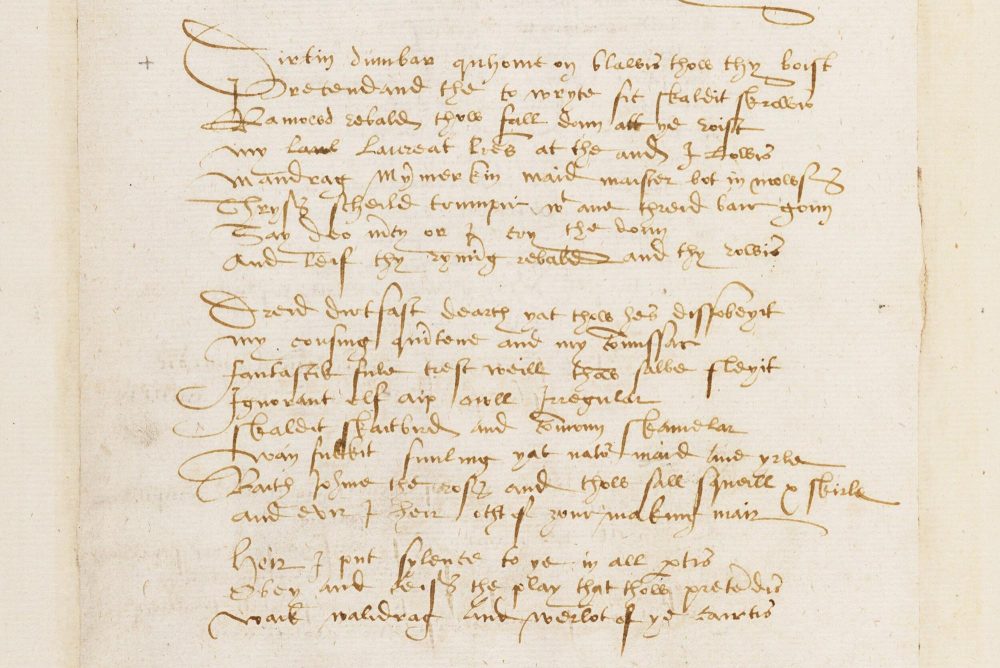 Dirtin dumbar quhome on blawis thow thy boist
Pretendand the to wryte sic skaldit skrowis
Ramowd rebald thow fall doun att ye roist
my laureat lres at the and I lowis
mandrag mymerkin maid maister bot in mows
Thrys scheild trumpir wt ane threid bair goun
Say deo mcy or I cry the doun
and leif thy ryming rebald and thy rowis
Dreid dirtfast dearth yat thow hes dissobeyit
my cousing quintene and my comissar
fantastik fule trest weill thow salbe fleyit
Ignorant elf aip owll Irregular
skaldit skaitbird and comoun skamelar
wan fukkit funling yat natr maid ane yrle
Baith Johine the ross and thow sall squeill & skirle
and evir I heir ocht of zour making mair
Heir I put sylence to ye in all ptis
Obey and ceiss the play that thow pretendis
waik walidrag and werlot of ye cairtis